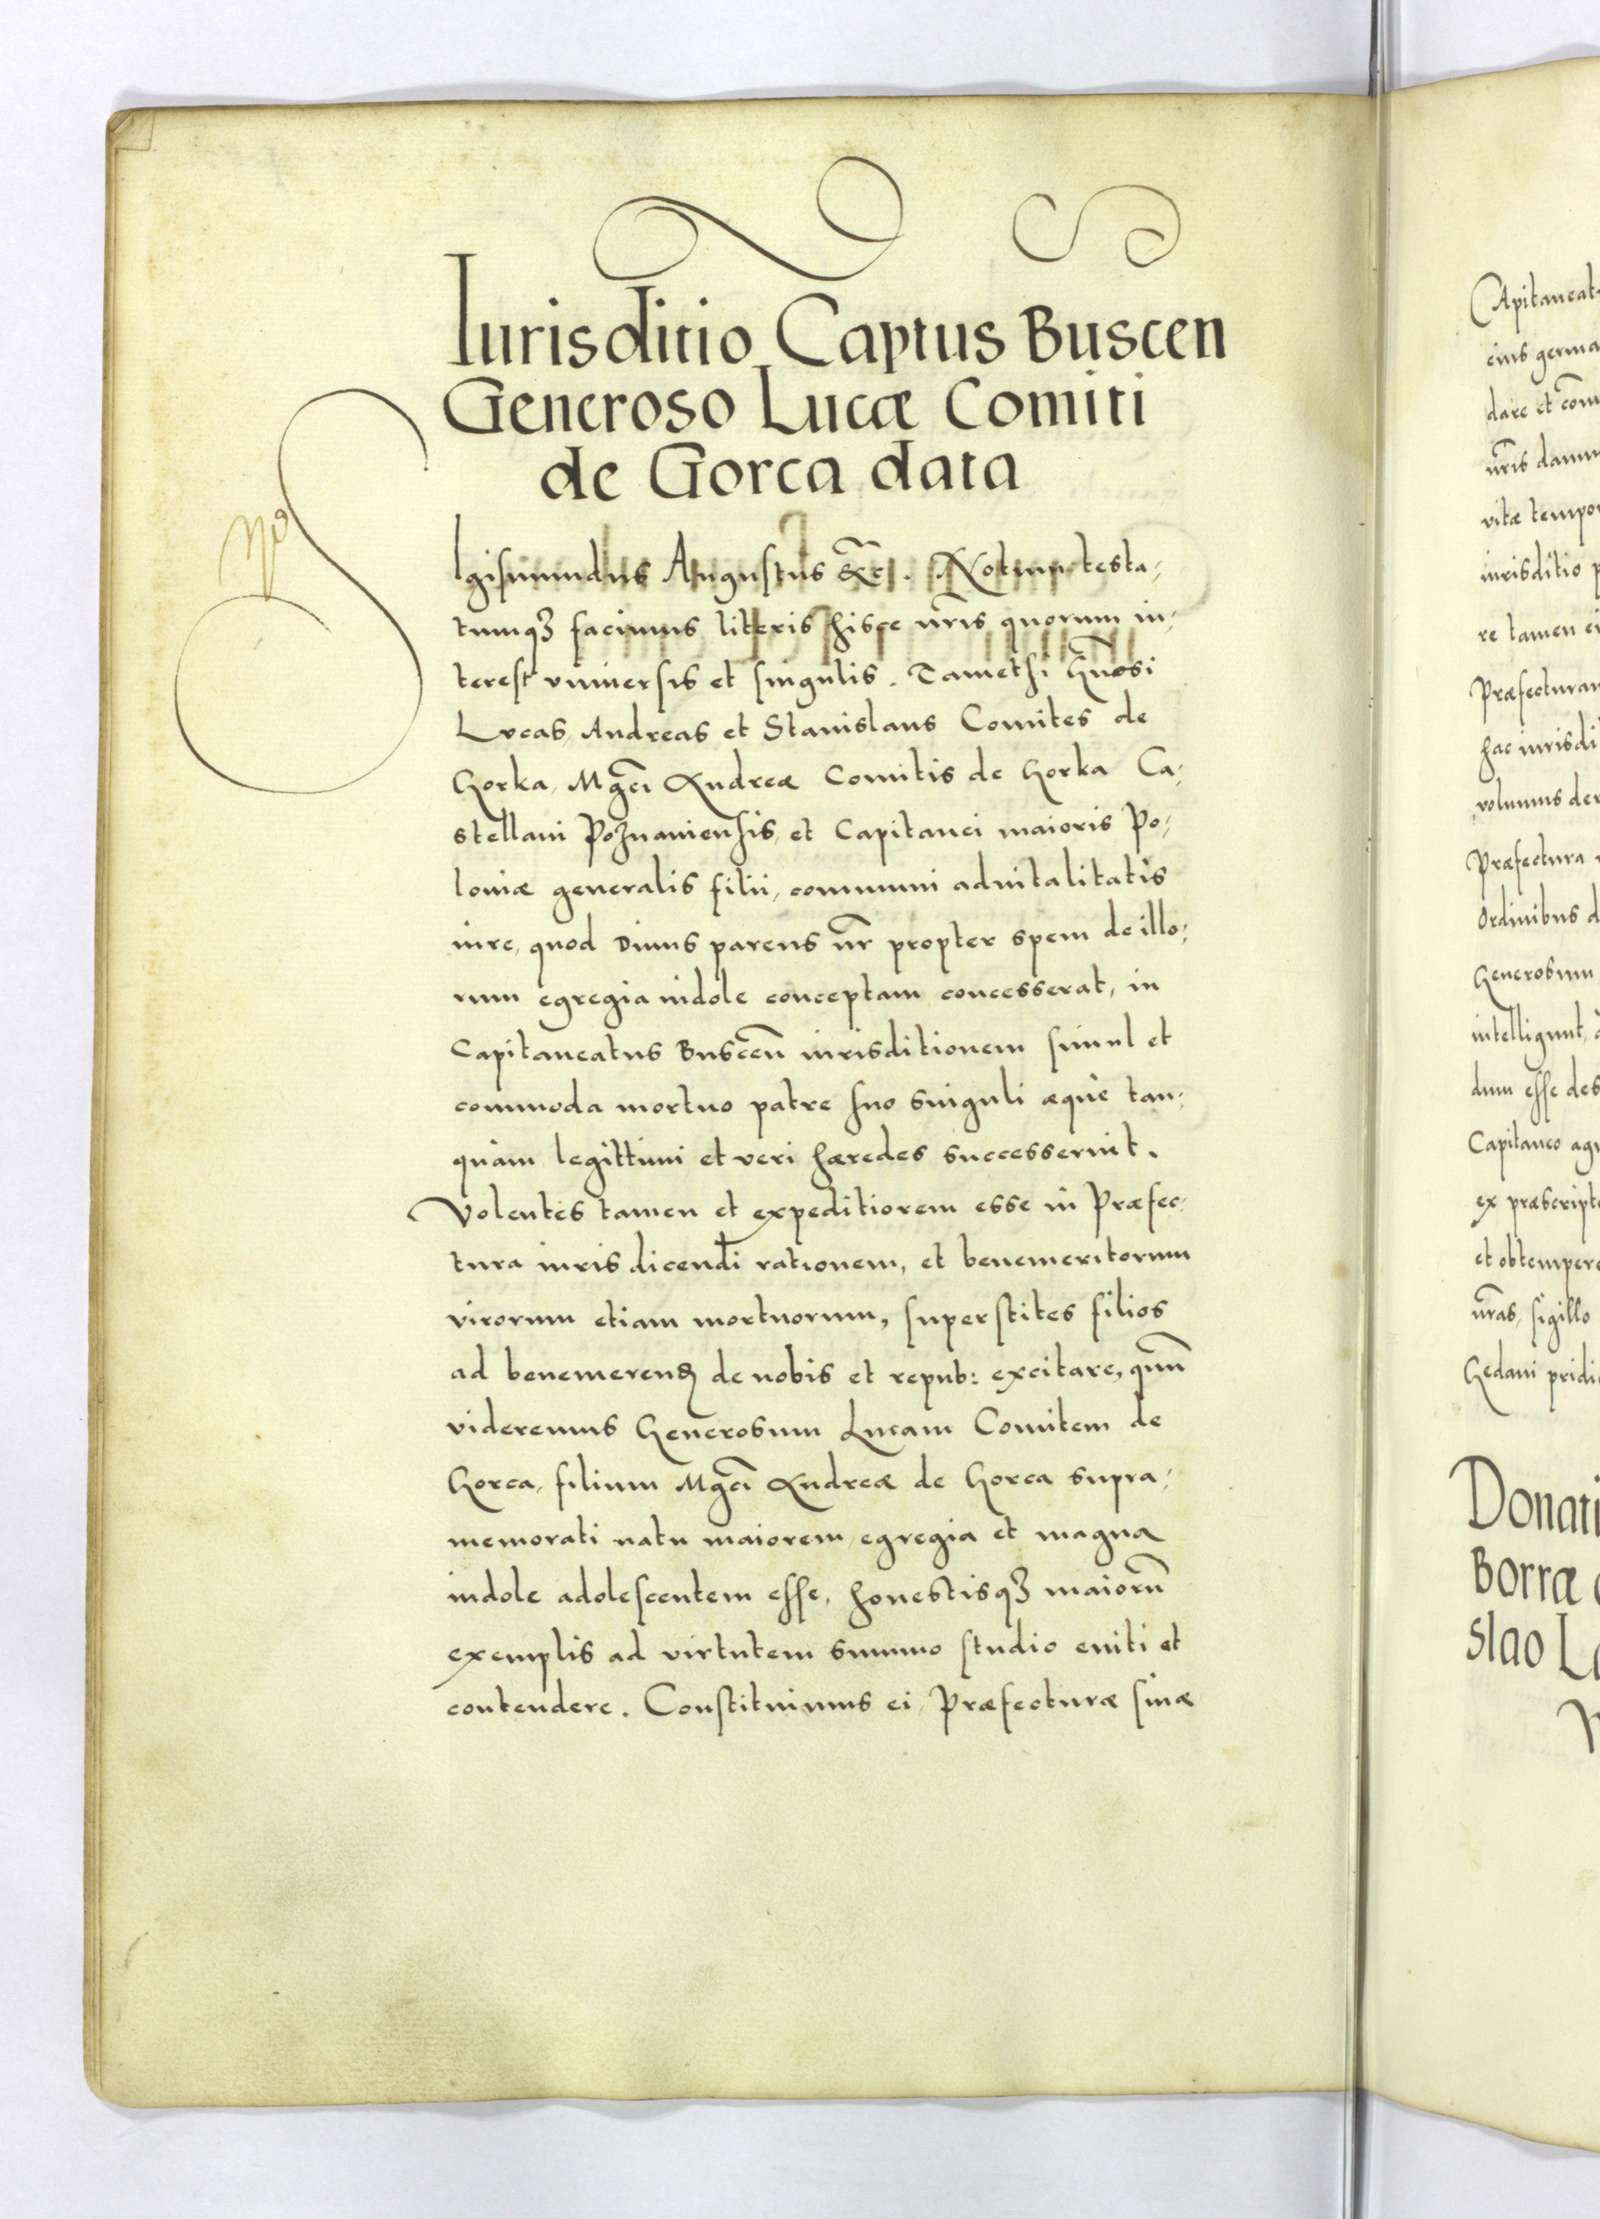 Iurisditio Captus Buscen
Generoso Lucæ Comiti
de Gorca data
SIgismundus Augustus &c̃. Notum testa-
tumqꝫ facimus literis hisce nr̃is quorum in-
terest vniuersis et singulis. Tamethsi Gñosi
Lvcas, Andreas et Stanislaus Comites de
Gorka, Mgc̃i Andreæ Comitis de Gorka Ca-
stellani Poznaniensis, et Capitanei maioris Po-
loniæ generalis filii, communi aduitalitatis
iure, quod Diuus parens nr̃ propter spem de illo-
rum egregia indole conceptam concesserat, in
Capitaneatus Buscen̄ iurisditionem simul et
commoda mortuo patre suo singuli æque tan-
quam legittimi et veri hæredes successerint.
Volentes tamen et expeditiorem esse in Præfec-
tura iuris dicendi rationem, et benemeritorum
virorum etiam mortuorum, superstites filios
ad benemerenḍ de nobis et repub: excitare, quū
videremus Generosum Lucam Comitem de
Gorca, filium Mgc̃i Andreæ de Gorca supra-
memorati natu maiorem, egregia et magna
indole adolescentem esse, honestisqꝫ maiorū
exemplis ad virtutem summo studio eniti et
contendere. Constituimus ei, Præfecturæ siuæ
Apitaneat
eius germa
dare et com̄
nr̃is damu
vitæ tempor
iurisditio p
re tamen ei
Præfecturam
hac iurisdi
volumus der
Præfectura
Ordinibus d
Generosum
intelligunt,
dum esse des
Capitaneo agn
ex præscripto
et obtempere
nr̃as, sigillo
Gedani pridi
Donati
Borræ
slao L